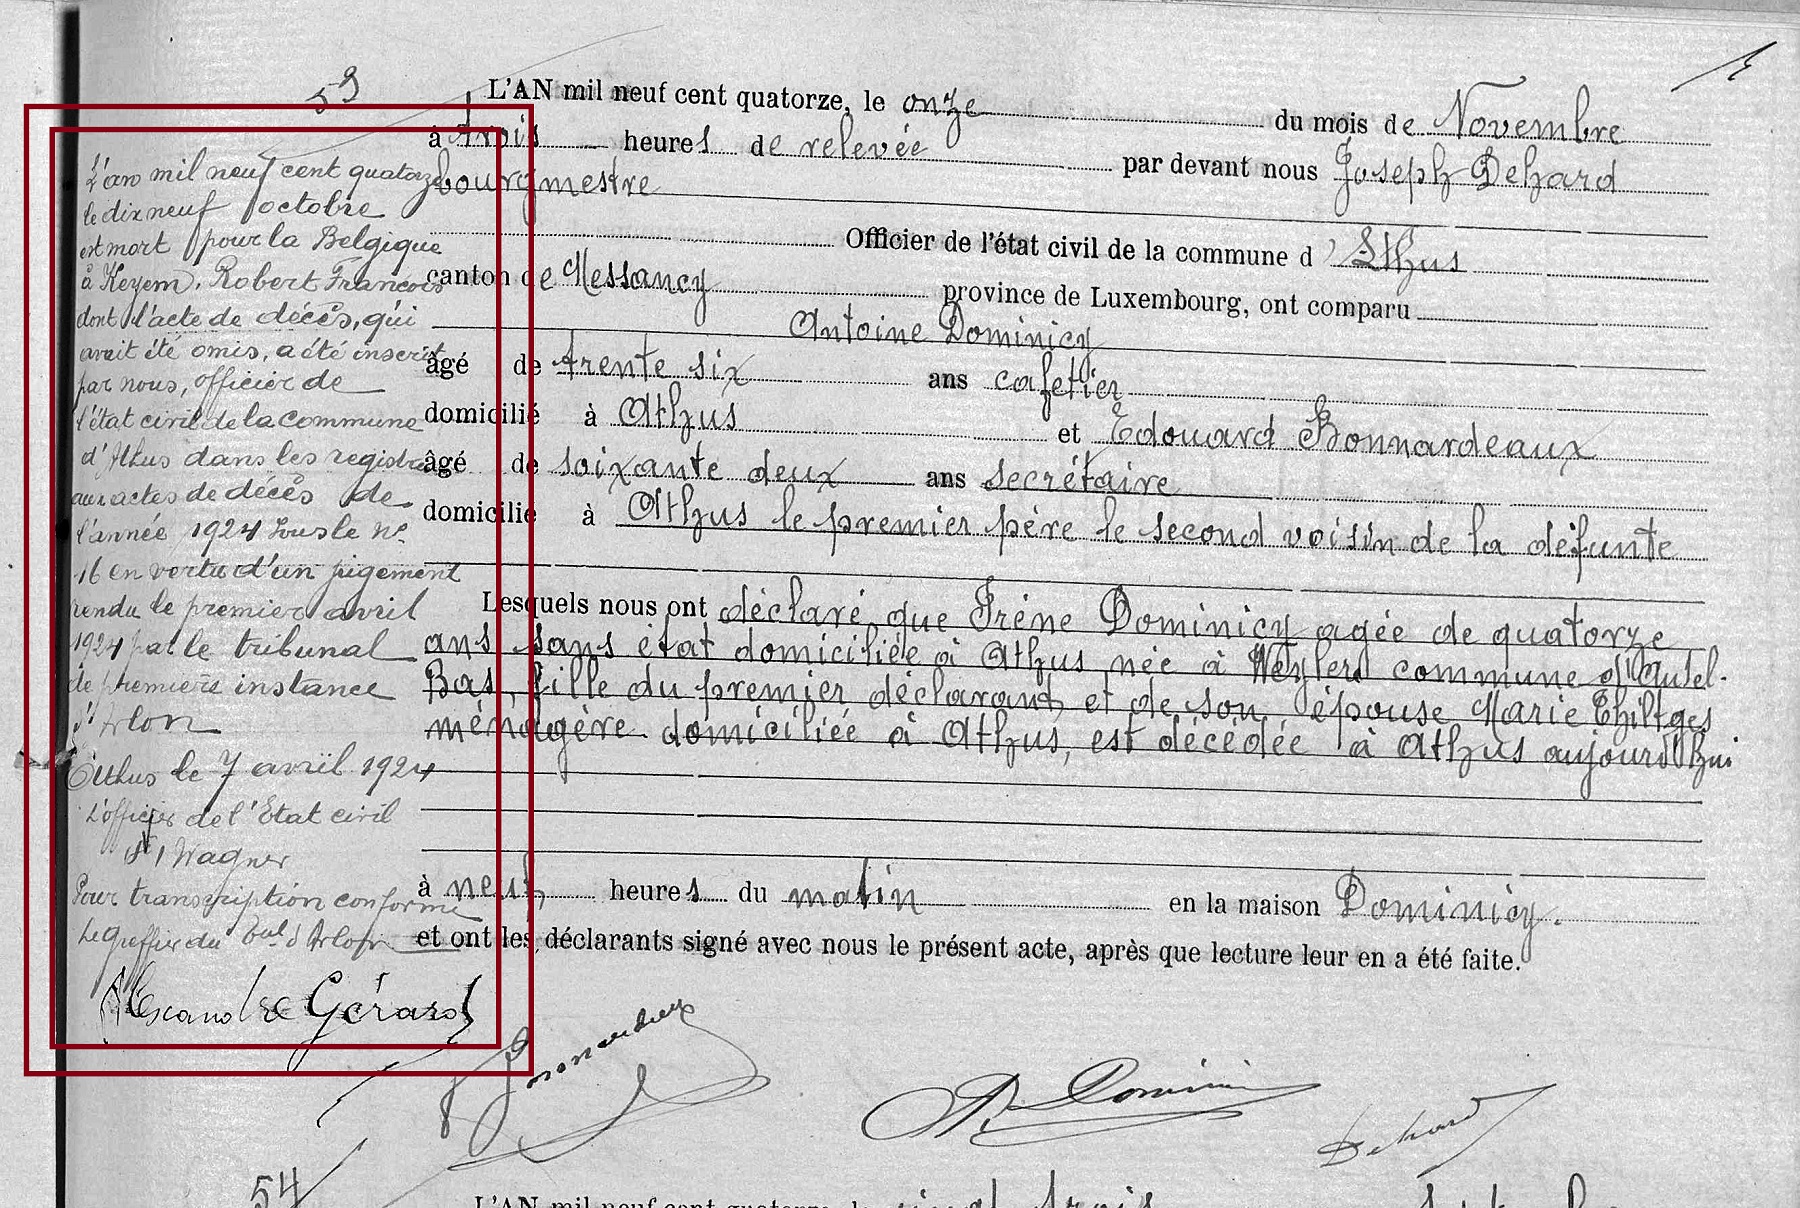 53
L'an mil neuf cent quatorze
le dix neuf octobre
est mort pour la Belgique
à Keyem, Robert François
dont l'acte de décès, qui
avait été omis, a été inscrit
par nous, officier de
l'état civil de la commune
d'Athus dans les registres
aux actes de décès de
l'année 1924 sous le No
16 en vertu d'un jugement
rendu le premier avril
1924 par le tribunal
de premièrs instance
d'Arlon
Athus le 7 avril 1924
L'officier de l'Etat civil
Wagner
Pour transcription conforme
Le greffier du Bal d'Arlon
Alexandre Gérard
L'AN mil neuf cent quatorze, le onze du mois de Novembre
à trois heures de relevée par devant nous Joseph Dehard
bourgmestre
Officier de l'état civil de la commune d'Athus
canton de Messancy province de Luxembourg, ont comparu
Antoine Dominicy
âgé de trente six ans cafetier
domicilié à Athus et Edouard Bonnardeaux
âgé de soixante deux ans secrétaire
domicilié à Athus le premier père le second voisin de la défunte
Lesquels nous ont déclaré que Irène Dominicy agée de quatorze
ans sans état domiciliée à Athus née à Weyler commune d'Autel-
Bas, fille du premier déclarant et de son épouse Marie Thiltges
ménagère domiciliée à Athus, est décédée à Athus aujourd'hui
à neuf heures du matin en la maison Dominicy.
et ont les déclarants signé avec nous le présent acte, après que lecture leur en a été faite.
Bonnardeaux
A. Dominicy
Dehard
54
L'AN mil neuf cent quatorze, le vingt trois